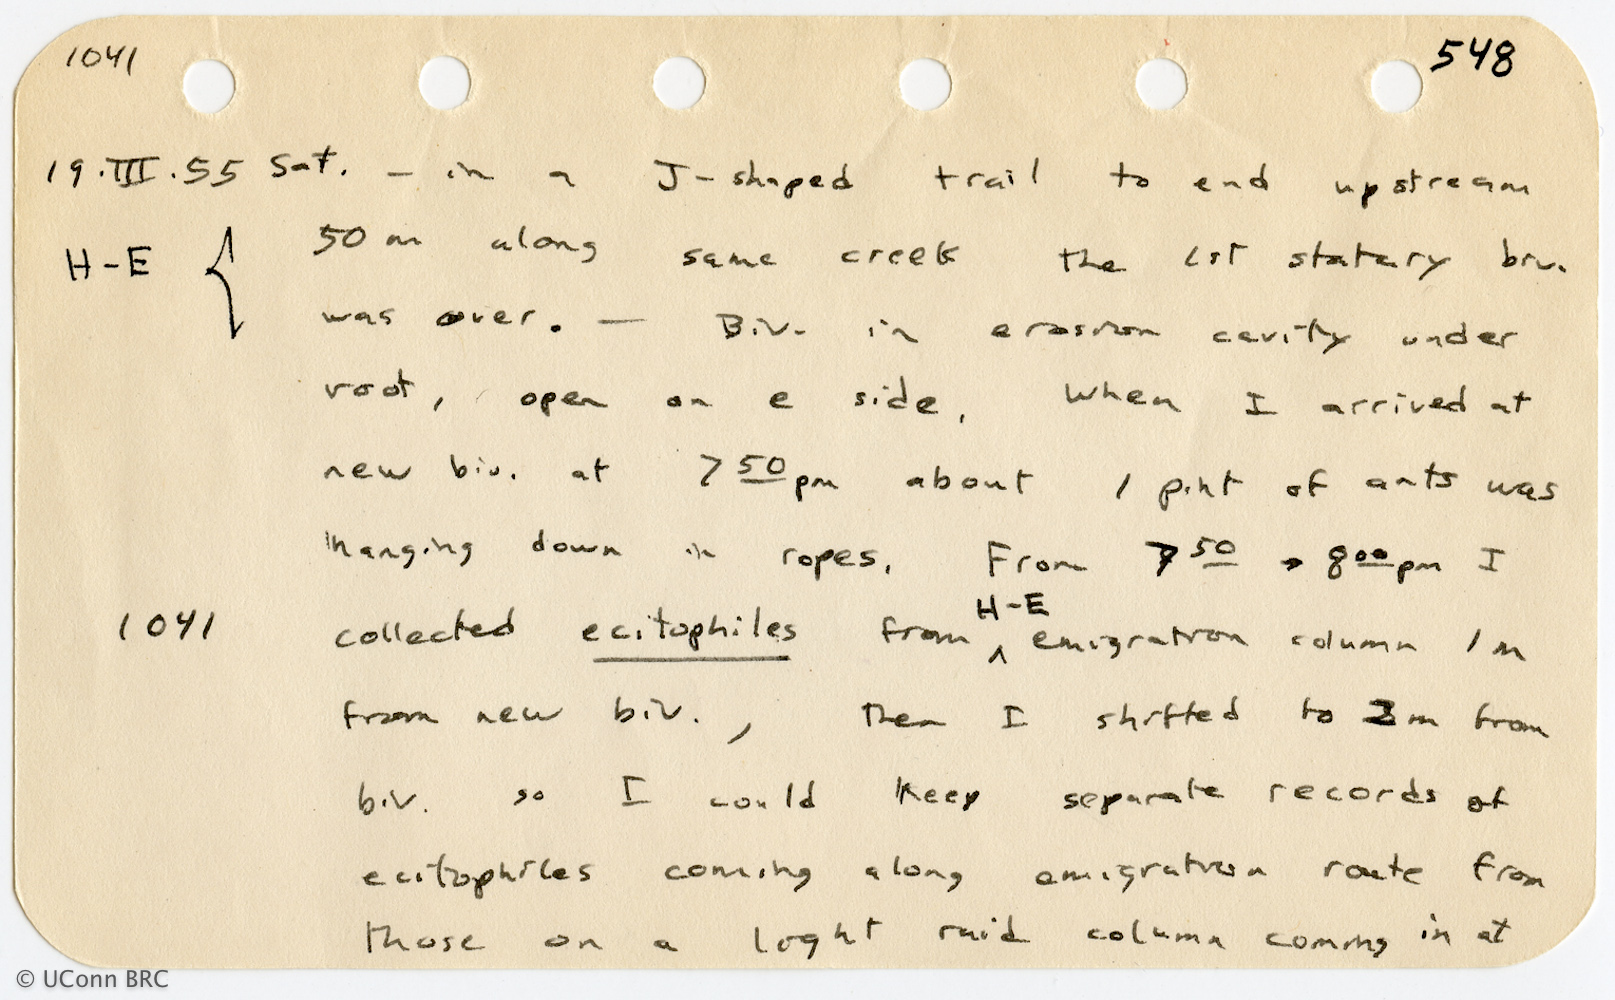 1041 548
19.III.55 Sat. — in a J-shaped trail to end upstream
H-E { 50 m along same creek the 1st statary biv.
was over. — Biv. in erosion cavity under
root, open on e side. When I arrived at
new biv. at 7 50 pm about 1 pint of ants was
hanging down in ropes. From 7 50 → 8 00 pm I
1041 collected ecitophiles from ^ H-E emigration column 1 m
from new biv., then I shifted to 2 m from
biv. so I could keep separate records of
ecitophiles coming along emigration route from
those on a light raid column coming in at
© UConn BRC